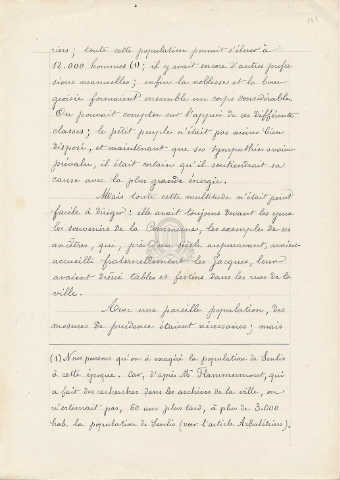 riers ; toute cette population pouvait s'élever à
12.000 hommes (1) ; il y avait encore d'autres profes
sions manuelles ; enfin la noblesse et la bour
geoisie formaient ensemble un corps considérable.
On pouvait compter sur l'appui de ces différentes
classes ; le petit peuple n'était pas moins bien
disposé, et maintenant que ses sympathies avaient
prévalu, il était certain qu'il soutiendrait sa
cause avec la plus grande énergie.
Mais toute cette multitude n'était point
facile à diriger : elle avait toujours devant les yeux
les souvenirs de la Commune, les exemples de ses
ancêtres, que, près d'un siècle auparavant, avaient
accueilli fraternellement les Jacques, leur
avaient dressé tables et festins dans les rues de la
ville.
Avec une pareille population, des
mesures de prudence étaient nécessaires ; mais
(1) Nous pensons qu'on a exagéré la population de Senlis
à cette époque. Car, d'après Mr Flammermont, qui
a fait des recherches dans les archives de la ville, on
n'estimait pas, 60 ans plus tard, à plus de 3.000
hab. la population de Senlis (voir l'article Arbalétriers).